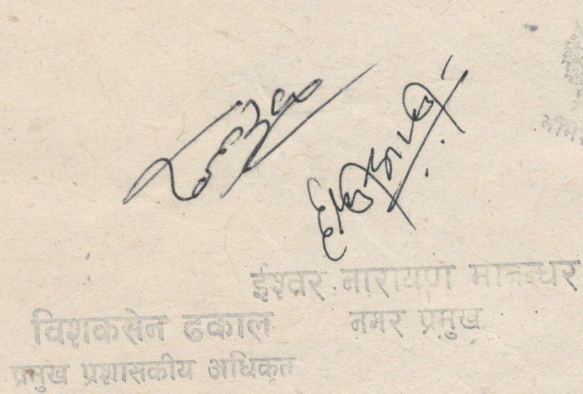 ईश्वर नारायण मानन्धर
नगर प्रमुख
विशकसेन ढकाल
प्रमुख प्रशासकीय अधिकृत